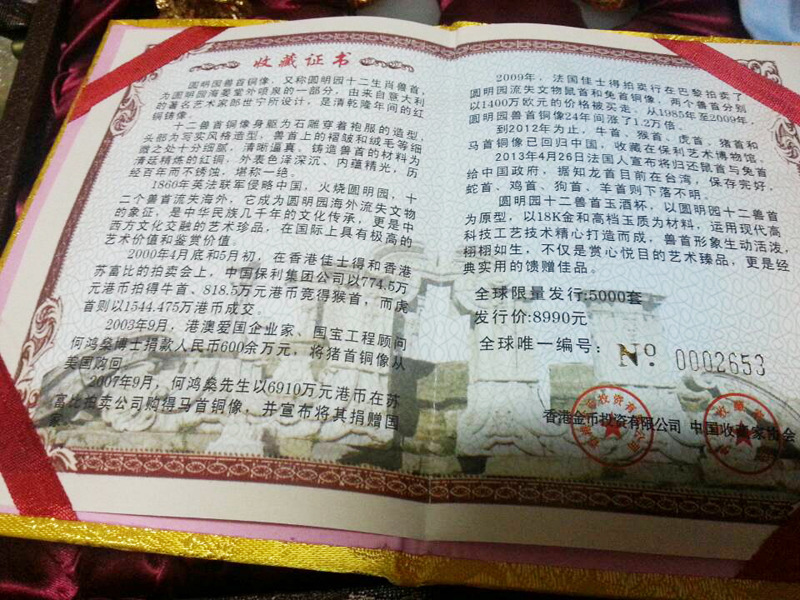 收藏证书
圆明园兽首铜像，又称圆明园十二生肖兽首，
为圆明园海晏堂外喷泉的一部分，由来自意大利
的著名艺术家郎世宁所设计，是清乾隆年间的红
铜铸像。
十二兽首铜像身躯为石雕穿着袍服的造型，
头部为写实风格造型，兽首上的褶皱和绒毛等细
微之处十分细腻，清晰逼真。铸造兽首的材料为
清廷精炼的红铜，外表色泽深沉、内蕴精光，历
经百年而不锈蚀，堪称一绝。
1860年英法联军侵略中国，火烧圆明园，十
二个兽首流失海外，它成为圆明园海外流失文物
的象征，是中华民族几千年的文化传承，更是中
西方文化交融的艺术珍品，在国际上具有极高的
艺术价值和鉴赏价值。
2000年4月底和5月初，在香港佳士得和香港
苏富比的拍卖会上，中国保利集团公司以774.5万
元港币拍得牛首、818.5万元港币竞得猴首，而虎
首则以1544.475万港币成交。
2003年9月，港澳爱国企业家、国宝工程顾问
何鸿燊博士捐款人民币600余万元，将猪首铜像从
美国购回。
2007年9月，何鸿燊先生以6910万元港币在苏
富比拍卖公司购得马首铜像，并宣布将其捐赠国
家。
2009年，法国佳士得拍卖行在巴黎拍卖了
圆明园流失文物鼠首和兔首铜像，两个兽首分别
以1400万欧元的价格被买走。从1985年至2009年，
圆明园兽首铜像24年间涨了1.2万倍。
到2012年为止，牛首、猴首、虎首、猪首和
马首铜像已回归中国，收藏在保利艺术博物馆。
2013年4月26日法国人宣布将归还鼠首与兔首
给中国政府，据知龙首目前在台湾，保存完好，
蛇首、鸡首、狗首、羊首则下落不明。
圆明园十二兽首玉酒杯，以圆明园十二兽首
为原型，以18K金和高档玉质为材料，运用现代高
科技工艺技术精心打造而成，兽首形象生动活泼，
栩栩如生，不仅是赏心悦目的艺术臻品，更是经
典实用的馈赠佳品。
全球限量发行:5000套
发行价:8990元
全球唯一编号： Nº 0002653
香港金币投资有限公司 中国收藏家协会